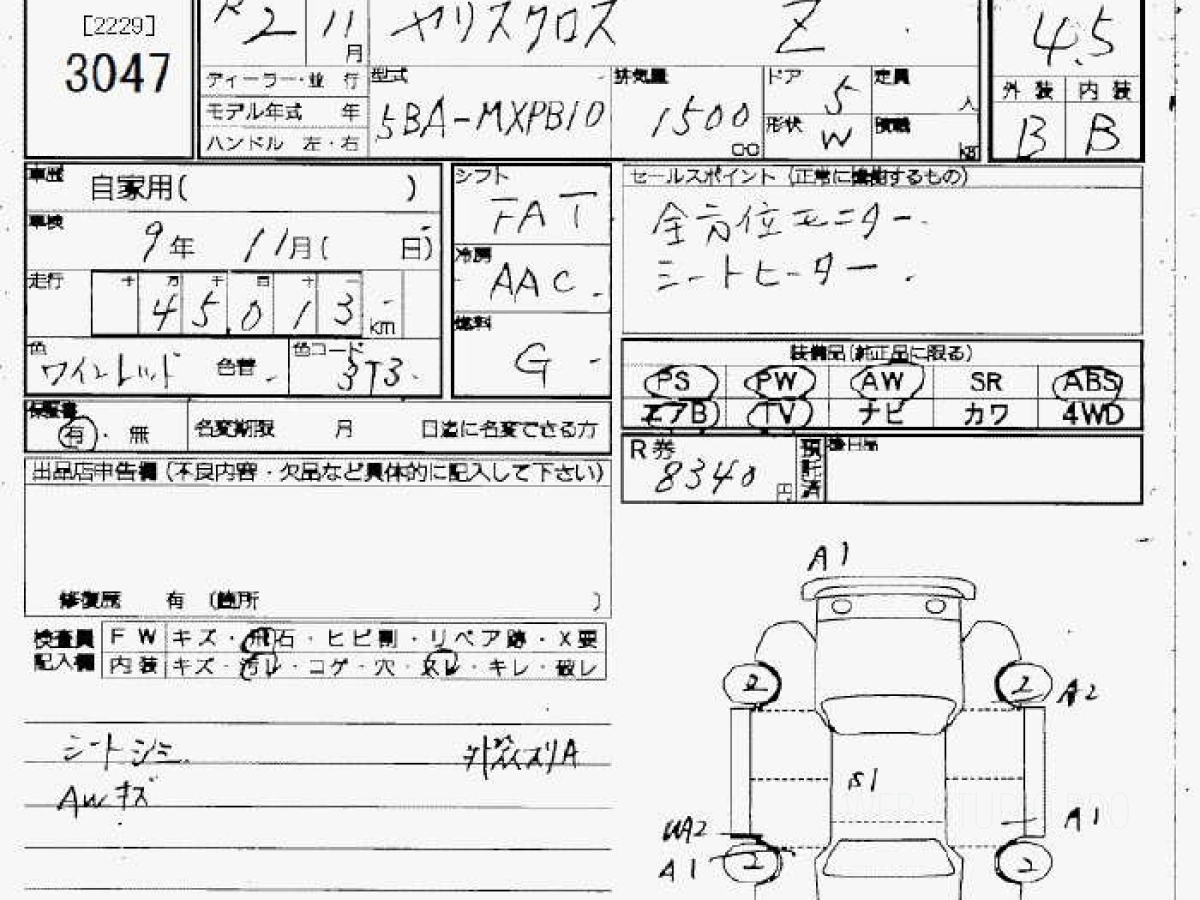 [2229]
3047
R2 11月 ヤリスクロス Z 4.5
ディーラー・並 行
モデル年式 年
ハンドル 左・右
型式 5BA-MXPB10
排気量 1500 cc
ドア 5
形状 W
定員 人
積載 kg
外装 内装
B B
車歴 自家用( )
車検 9年 11月( 日)
走行 十 万 千 百 十 一
45013 km
色 ワインレッド 色替
色コード 3T3
シフト FAT
冷房 AAC
燃料 G
セールスポイント (正常に機能するもの)
全方位モニター
シートヒーター
装備品(純正品に限る)
PS PW AW SR ABS
エアB TV ナビ カワ 4WD
保証書 有・無
名変期限 月 日迄に名変できる方
R券 8340円
預託済
後日品
出品店申告欄 (不良内容・欠品など具体的に記入して下さい)
修復歴 有 (箇所 )
検査員記入欄
FW キズ・飛石・ヒビ割・リペア跡・X要
内装 キズ・汚レ・コゲ・穴・スレ・キレ・破レ
シートシミ
AWキズ
A1
2 2 A2
B1
A1
UA2
A1 2 2